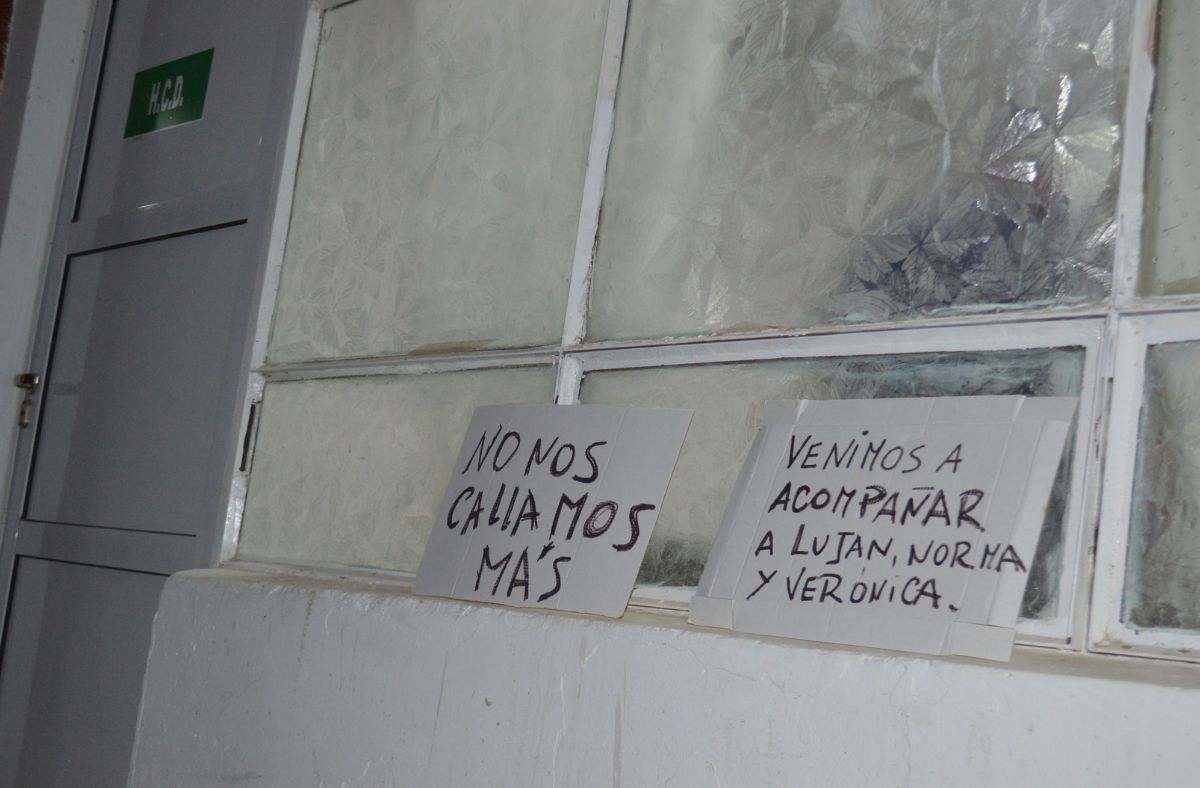 H.C.D.
NO NOS
CALLAMOS
MÁS
VENIMOS A
ACOMPAÑAR
A LUJAN, NORMA
Y VERÓNICA.